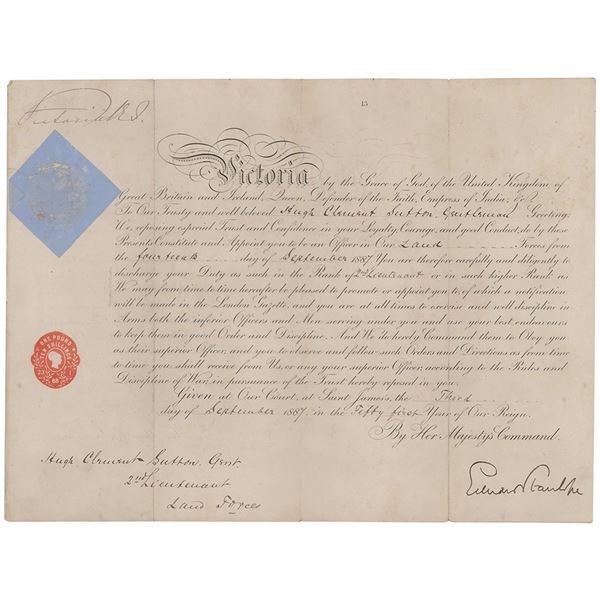 Victoria R I
15
Victoria by the Grace of God, of the United Kingdom of
Great Britain and Ireland, Queen, Defender of the Faith, Empress of India, &c.
To Our Trusty and well beloved Hugh Clement Sutton, Gentleman Greeting:
We, reposing especial Trust and Confidence in your Loyalty, Courage, and good Conduct, do by these
Presents Constitute and Appoint you to be an Officer in Our Land Forces from
the fourteenth day of September 1887. You are therefore carefully and diligently to
discharge your Duty as such in the Rank of 2nd Lieutenant or in such higher Rank as
We may from time to time hereafter be pleased to promote or appoint you to, of which a notification
will be made in the London Gazette, and you are at all times to exercise and well discipline in
Arms both the inferior Officers and Men serving under you and use your best endeavours
to keep them in good Order and Discipline. And We do hereby Command them to Obey you
as their superior Officer, and you to observe and follow such Orders and Directions as from time
to time you shall receive from Us, or any your superior Officer, according to the Rules and
Discipline of War, in pursuance of the Trust hereby reposed in you.
ONE POUND
SHILLINGS
Given at Our Court, at Saint James's, the Third
day of September 1887, in the Fifty first Year of Our Reign.
By Her Majesty's Command.
Hugh Clement Sutton, Gent
2nd Lieutenant
Land Forces
Edward Stanhope